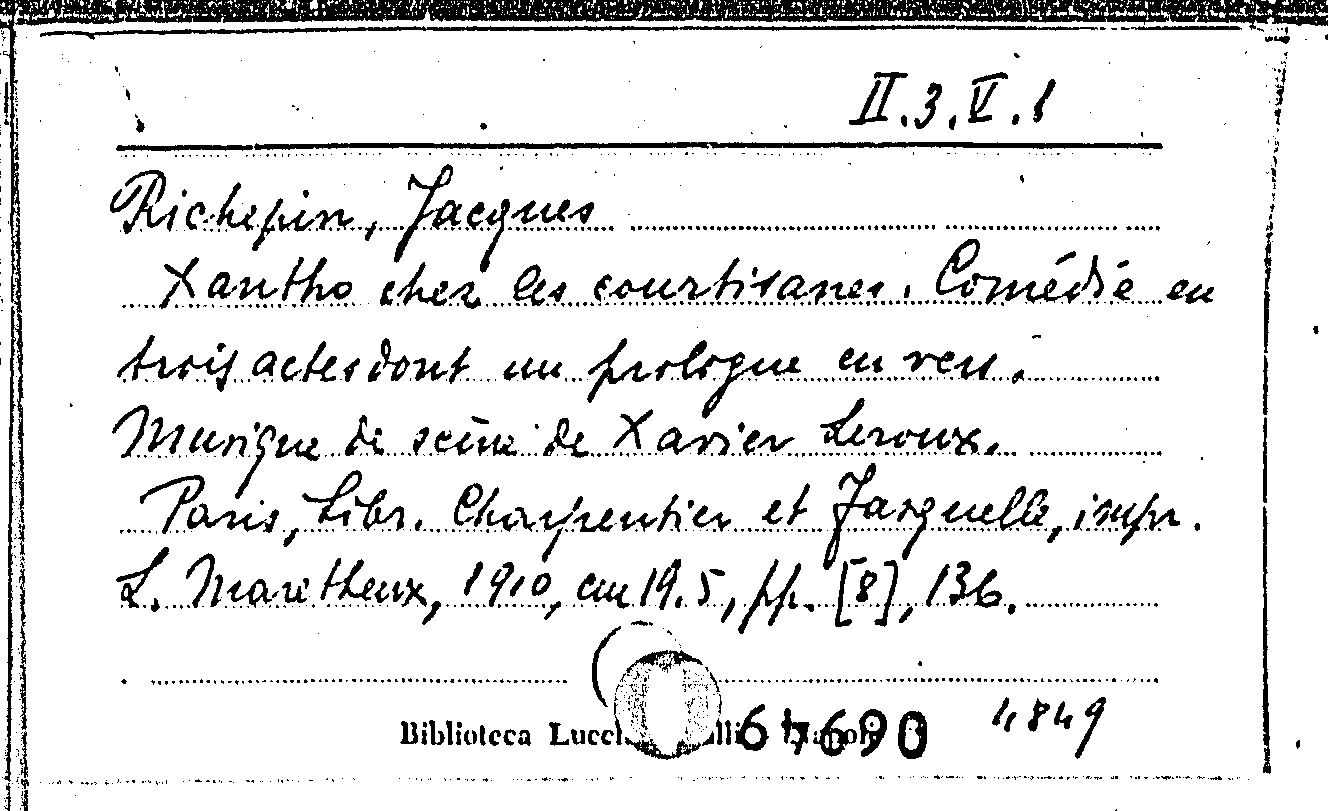 II.3.V.8
Richepin, Jacques
Xantho chez les courtisanes. Comédie en
trois actes dont un prologue en vers.
Musique de scène de Xavier Leroux.
Paris, Libr. Charpentier et Fasquelle, impr.
L. Maretheux, 1910, cm 19.5, pp. [8], 136.
Biblioteca
67690
4849